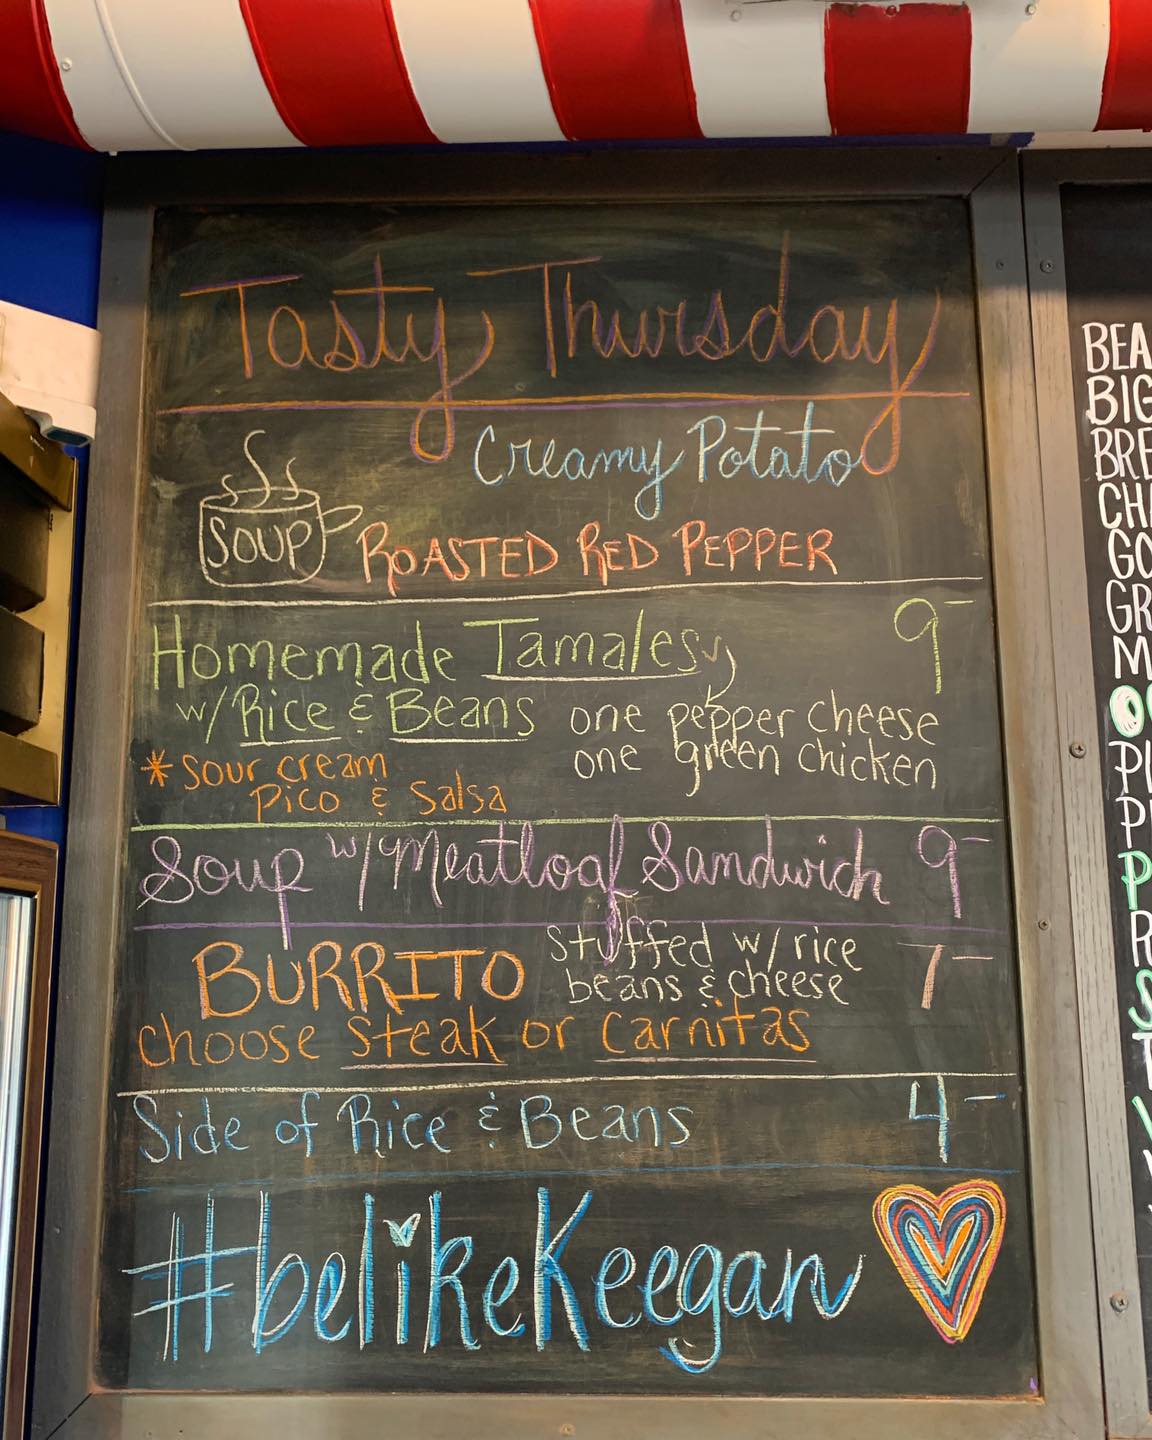 Tasty Thursday
Creamy Potato
SOUP ROASTED RED PEPPER
Homemade Tamales 9-
w/Rice & Beans one pepper cheese
one green chicken
*sour cream
Pico & Salsa
Soup w/Meatloaf Sandwich 9-
BURRITO stuffed w/ rice 7-
beans & cheese
choose steak or carnitas
Side of Rice & Beans 4-
#belikeKeegan
BEA
BIG
BRE
CHA
GO
GR
M